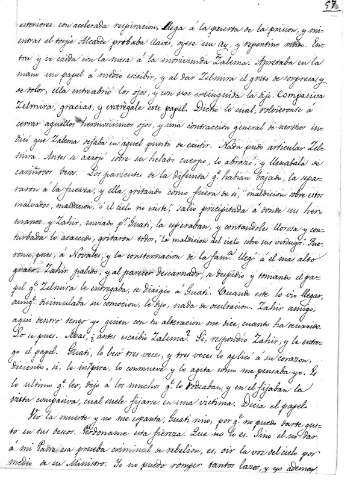 57
esteriores con acelerada respiracion, llega á la puerta de la prision, y mi-
entras el viejo Alcaide probaba llaves, oyese un ay, y repentino
tra y se caida con la mesa á la moribunda Zulema. Apretaba en la
mano un papel á medio escribir, y al dar Zelmira el grito de sorpresa, y
de dolor, ella entreabrió los ojos, y con voz estinguida la dijo Compasiva
Zelmira, gracias, y entregale este papel. Dicho lo cual, volvieronse á
cerrar aquellos hermosisimos ojos, y una contraccion general de nervios in-
dicó que Zulema dejaba en aquel punto de existir. Nada pudo articular Zel-
mira. Antes se arrojó sobre su helado cuerpo, lo abrazó, y llenabala de
cariñosos besos. Los parientes de la difunta q.e habian bajado, la sepa-
raron á la fuerza, y ella gritando como fuera de sí, "maldicion sobre estos
malvados, maldicion, ó el cielo no existe", salió precipitada á donde su her-
mano, y Zahir, enviado p.r Guati, la esperaban, y contandoles llorosa y con-
turbada lo acaecido, gritaron todos, la maldicion del cielo sobre un verdugo.
pues, á Novales, y la consternacion de la fam.a llegó á el mas alto
grado. Zahir palido, y al parecer descarnado, se despidió y tomando el pa-
pel q.e Zelmira le entregaba, se dirigió á Guati. Cuando este lo vió llegar,
aunq.e disimulaba su conmocion, le dijo, nada de ocultacion. Zahir amigo,
aqui dentro tengo yo quien con tu alteracion me dice, cuanto ha ocurrido.
Lo se pues. Mas, ¿antes escribió Zulema? Si, respondió Zahir, y le entre-
gó el papel. Guati, lo leyó tres veces, y tres veces lo aplicó á su corazon,
diciendo, si, lo inspira, lo conmueve y lo agita cuan me pensaba yo. Se
lo ultimo q.e leo, dijo á los muchos q.e lo rodeaban, y en él fijaban la
vista compasiva, cual suele fijarse en una victima. Decia el papel
Ve la muerte y no me espanta, Guati mio, por q.e no puedo darte gus-
to en tus deseos. Perdoname esta fiereza. Que no lo es. Sino el no dar
á mi Padre una prueba criminal de rebelion, es oir la voz del cielo por
medio de su Ministro. Yo no puedo romper tantos lazos, y yo ademas